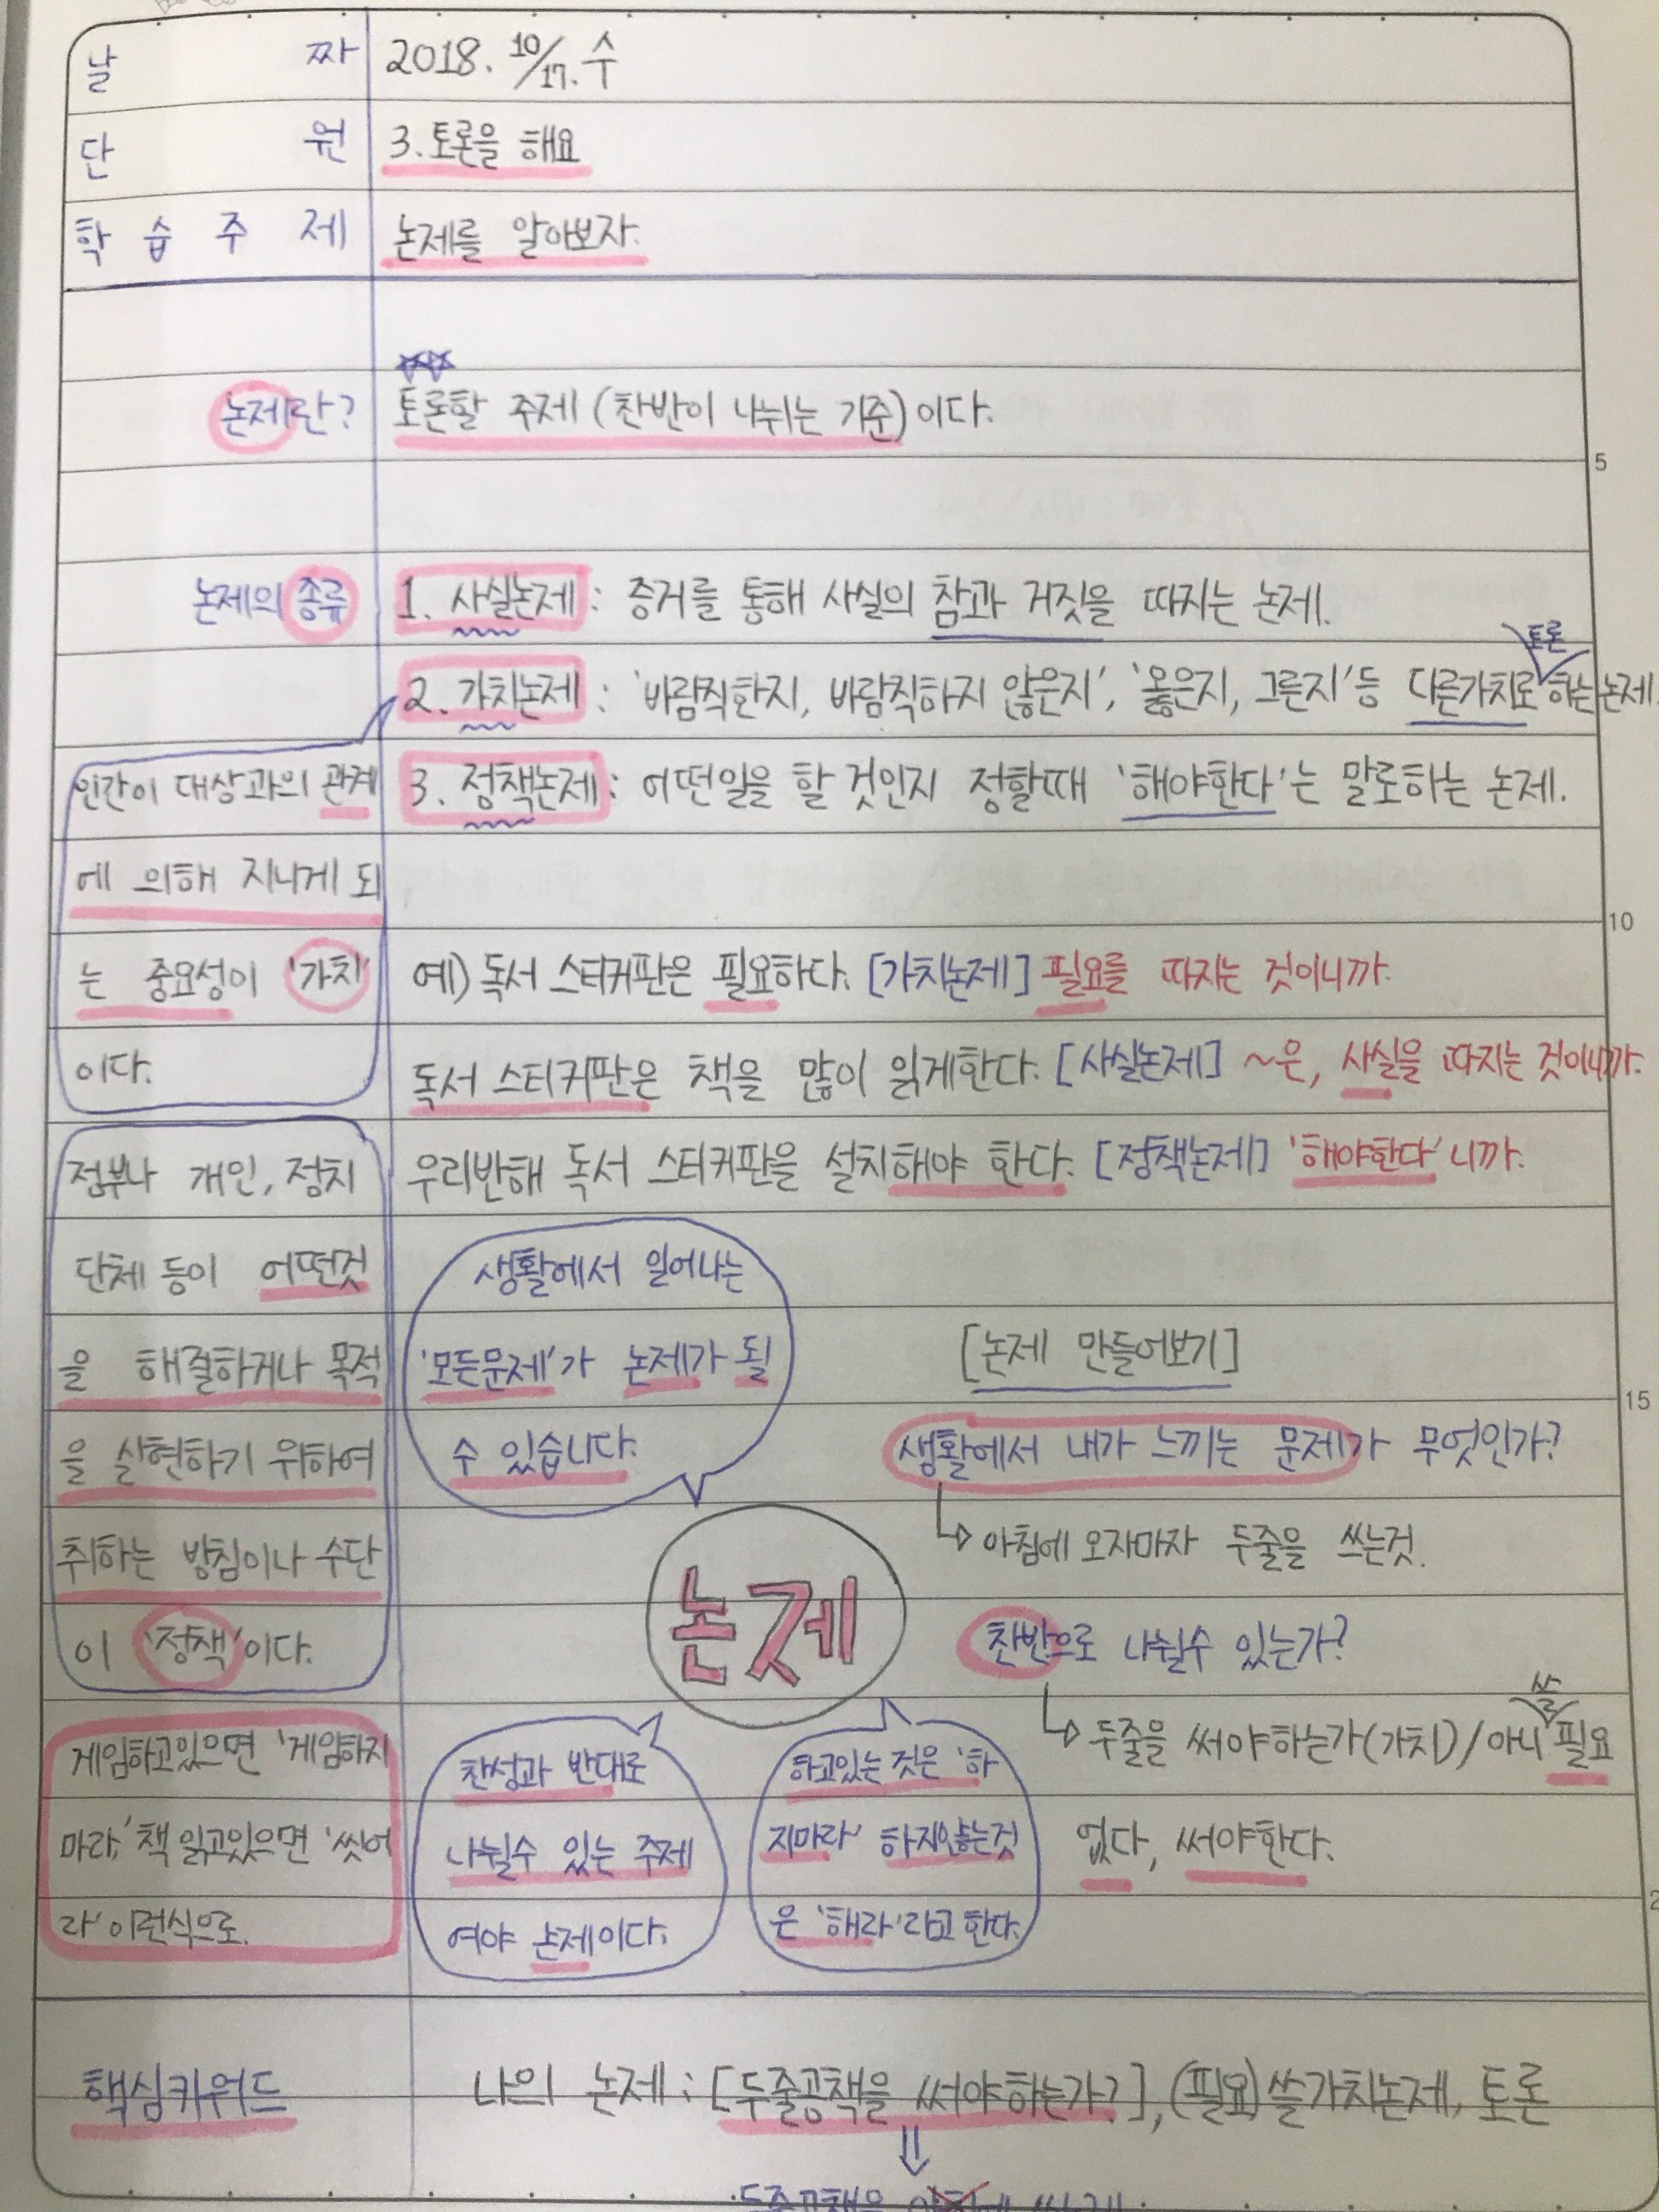 날짜 2018. 10/17. 수
단원 3. 토론을 해요
학습주제 논제를 알아보자.
논제란? 토론할 주제 (찬반이 나뉘는 기준)이다.
5
논제의 종류 1. 사실논제 : 증거를 통해 사실의 참과 거짓을 따지는 논제.
토론
2. 가치논제 : '바람직한지, 바람직하지 않은지', '옳은지, 그른지' 등 다른가치로 하는 논제.
3. 정책논제 : 어떤일을 할 것인지 정할때 '해야한다'는 말로하는 논제.
인간이 대상과의 관계
에 의해 지니게 되
는 중요성이 '가치'
이다.
10
예) 독서 스티커판은 필요하다. [가치논제] 필요를 따지는 것이니까.
독서 스티커판은 책을 많이 읽게한다. [사실논제] ~은, 사실을 따지는 것이니까.
우리반해 독서 스티커판을 설치해야 한다. [정책논제] '해야한다'니까.
정부나 개인, 정치
단체 등이 어떤것
을 해결하거나 목적
을 실현하기 위하여
취하는 방침이나 수단
이 '정책'이다.
생활에서 일어나는
'모든문제'가 논제가 될
수 있습니다.
[논제 만들어보기]
15
생활에서 내가 느끼는 문제가 무엇인가?
아침에 오자마자 두줄을 쓰는것.
논제
찬반으로 나뉠수 있는가?
쓸
두줄을 써야하는가(가치)/아니 필요
없다, 써야한다.
게임하고있으면 '게임하지
마라,' 책 읽고있으면 '씻어
라' 이런식으로.
찬성과 반대로
나뉠수 있는 주제
여야 논제이다.
하고있는 것은 '하
지마라' 하지않는것
은 '해라'라고 한다.
2
핵심키워드 나의 논제 : [두줄공책을 써야하는가?], (필요) 쓸가치논제, 토론
두줄공책을